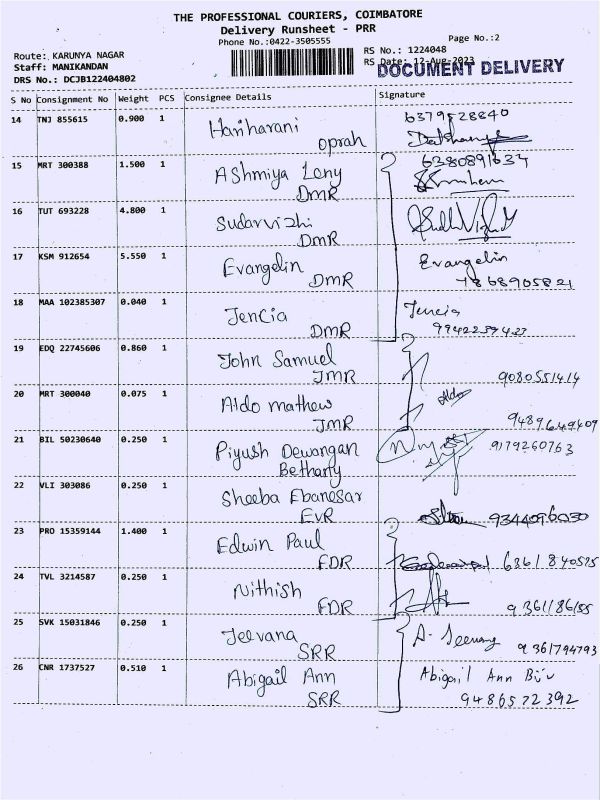 THE PROFESSIONAL COURIERS, COIMBATORE
Delivery Runsheet - PRR
Phone No.:0422-3505555
Page No.:2
Route: KARUNYA NAGAR
RS No.: 1224048
Staff: MANIKANDAN
RS Date: 12-Aug-2023
DOCUMENT DELIVERY
DRS No.: DCJB122404802
S No Consignment No Weight PCS Consignee Details Signature
14 TNJ 855615 0.900 1 Hariharani 6379528840
Oprah
15 MRT 300388 1.500 1 Ashmiya Lony 6380891634
DMR
16 TUT 693228 4.800 1 Sudarvizhi
DMR
17 KSM 912654 5.550 1 Evangelin Evangelin
DMR 7868905821
18 MAA 102385307 0.040 1 Jencia Jencia
DMR
19 EDQ 22745606 0.860 1 John Samuel
JMR 9080551414
20 MRT 300040 0.075 1 Aldo mathew Aldo
JMR 9489649409
21 BIL 50230640 0.250 1 Piyush Dewangan 9179260763
Bethany
22 VLI 303086 0.250 1 Sheeba Ebanesar
EVR 9344096030
23 PRO 15359144 1.400 1 Edwin Paul
FDR 6361840575
24 TVL 3214587 0.250 1 Nithish
FDR 9361186155
25 SVK 15031846 0.250 1 Jeevana
SRR 9361794793
26 CNR 1737527 0.510 1 Abigail Ann Abigail Ann
SRR 9486572392